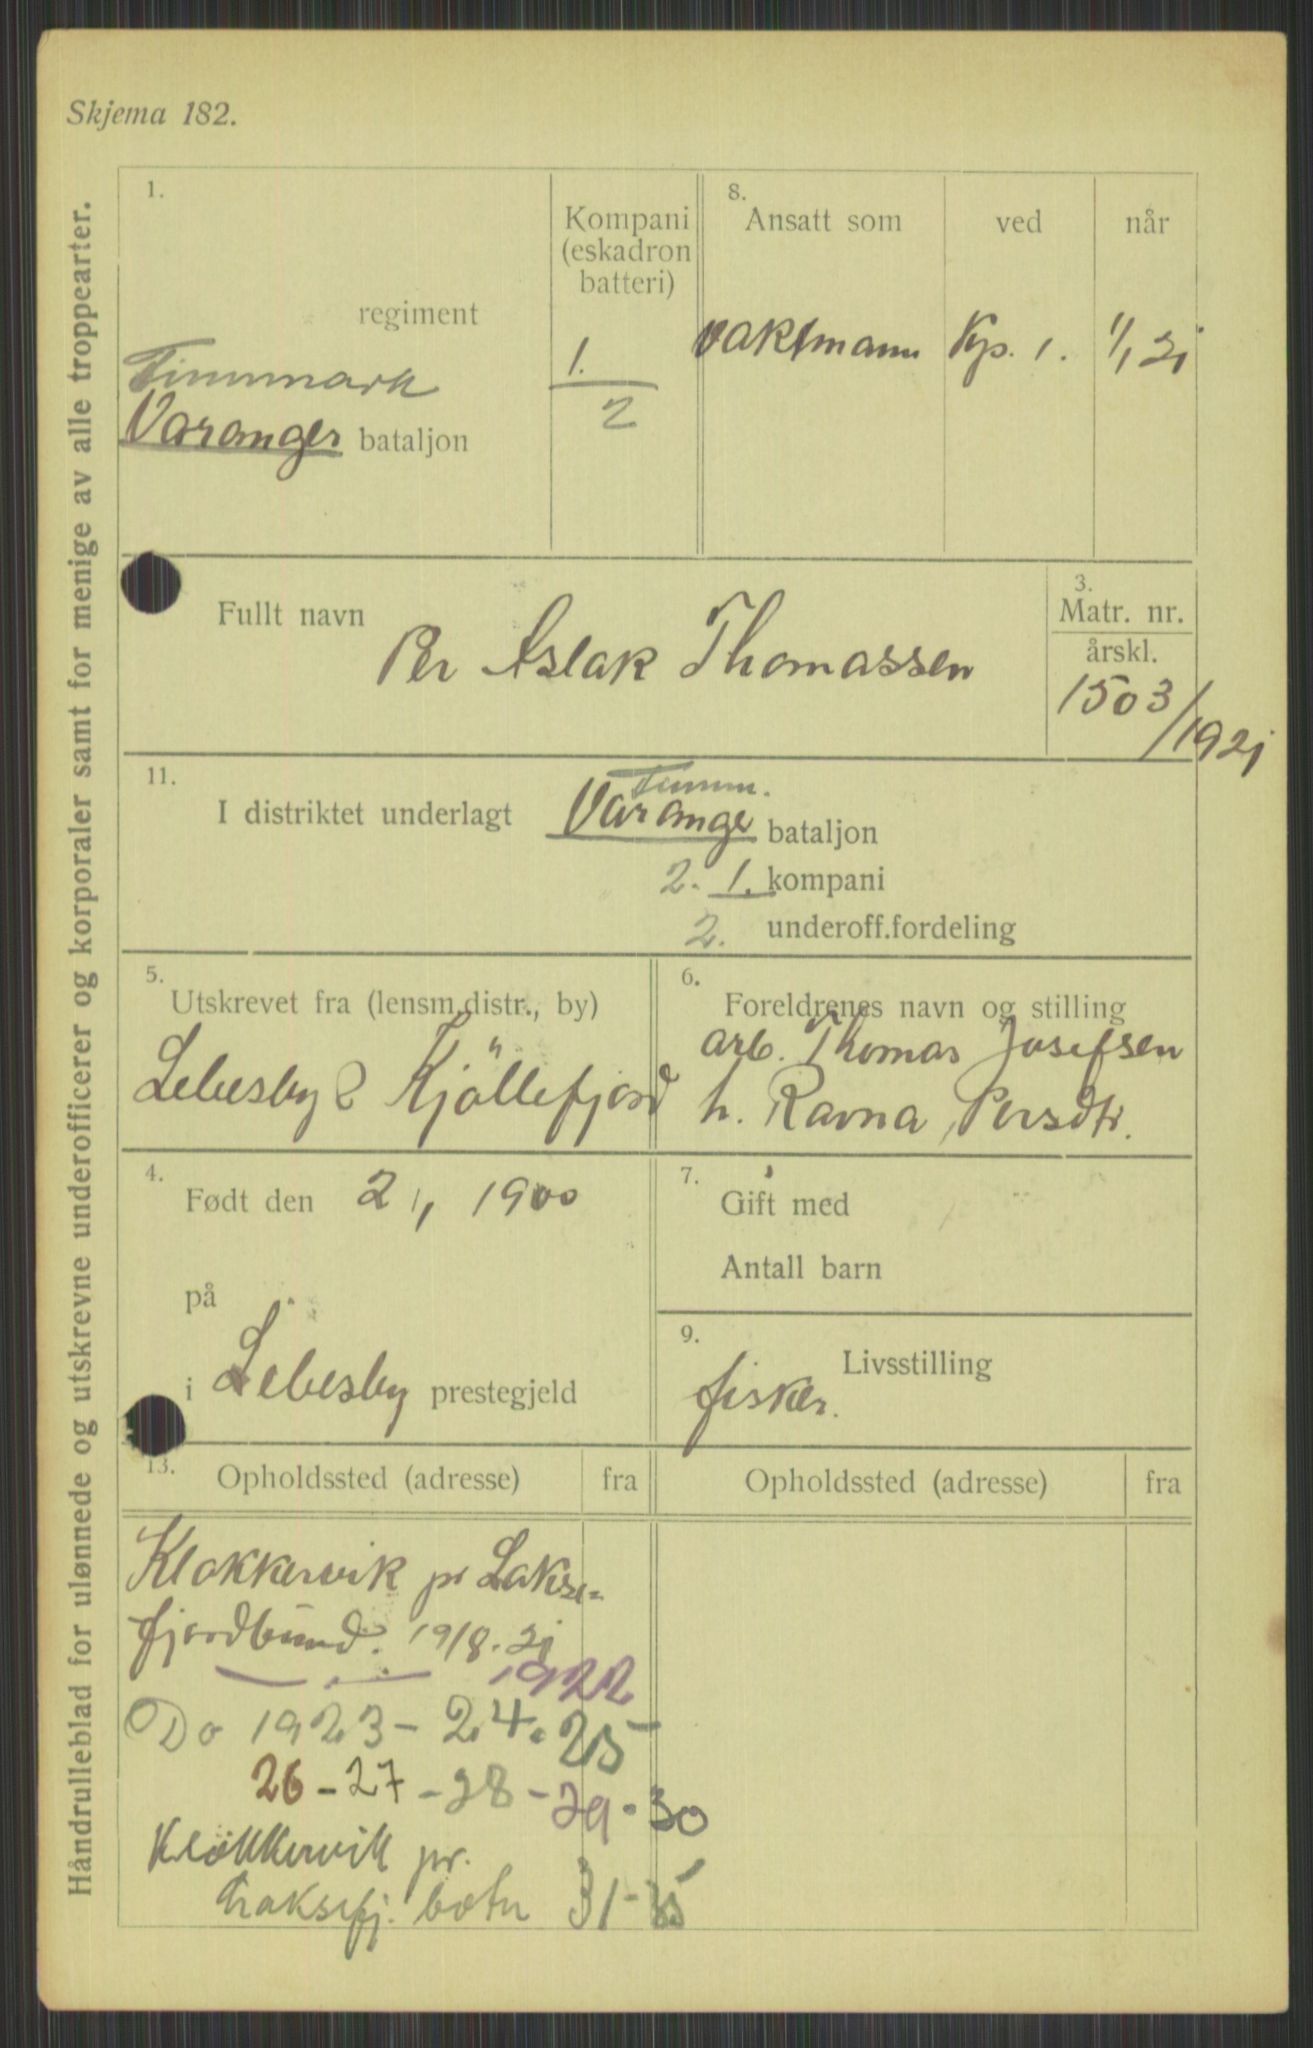 Skjema 182.
Håndrulleblad for ulønnede og utskrevne underofficerer og korporaler samt for menige av alle troppearter.
1.
regiment
Finnmark
Varanger bataljon
Kompani
(eskadron
batteri)
1.
2
8.
Ansatt som
ved
når
vaktmann Kp. 1. 1/1 21
Fullt navn
Per Aslak Thomassen
3.
Matr. nr.
årskl.
1503/1921
11.
Finnm.
I distriktet underlagt Varanger bataljon
2. 1. kompani
2. underoff.fordeling
5.
Utskrevet fra (lensm.distr., by)
Lebesby & Kjöllefjord
6.
Foreldrenes navn og stilling
arb. Thomas Josefsen
h. Ravna Persdtr.
4.
Født den 2/1 1900
på
i Lebesby prestegjeld
7.
Gift med
Antall barn
9.
Livsstilling
fisker.
13.
Opholdssted (adresse)
fra
Opholdssted (adresse)
fra
Klokkervik pr Lakse-
fjordbund. 1918. 21
1922
Do 1923 - 24. 25
26 - 27 - 28 - 29 - 30
Klokkervik pr.
Laksefj. botn 31-